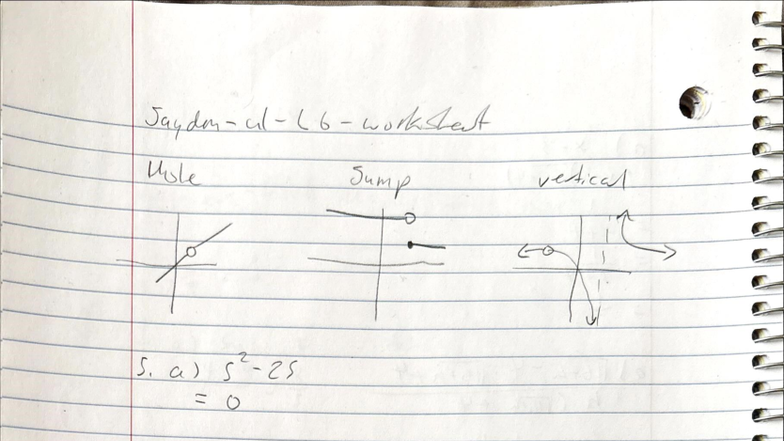 Jaydon-U1-L6-worksheet
Hole Jump vertical
5. a) 5²-25
= 0